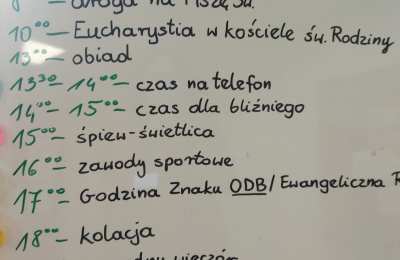 droga na Mszę Św.
10⁰⁰ – Eucharystia w kościele św. Rodziny
13⁰⁰ – obiad
13³⁰ – 14⁰⁰ – czas na telefon
14⁰⁰ – 15⁰⁰ – czas dla bliźniego
15⁰⁰ – śpiew-świetlica
16⁰⁰ – zawody sportowe
17⁰⁰ – Godzina Znaku ODB / Ewangeliczna R
18⁰⁰ – kolacja